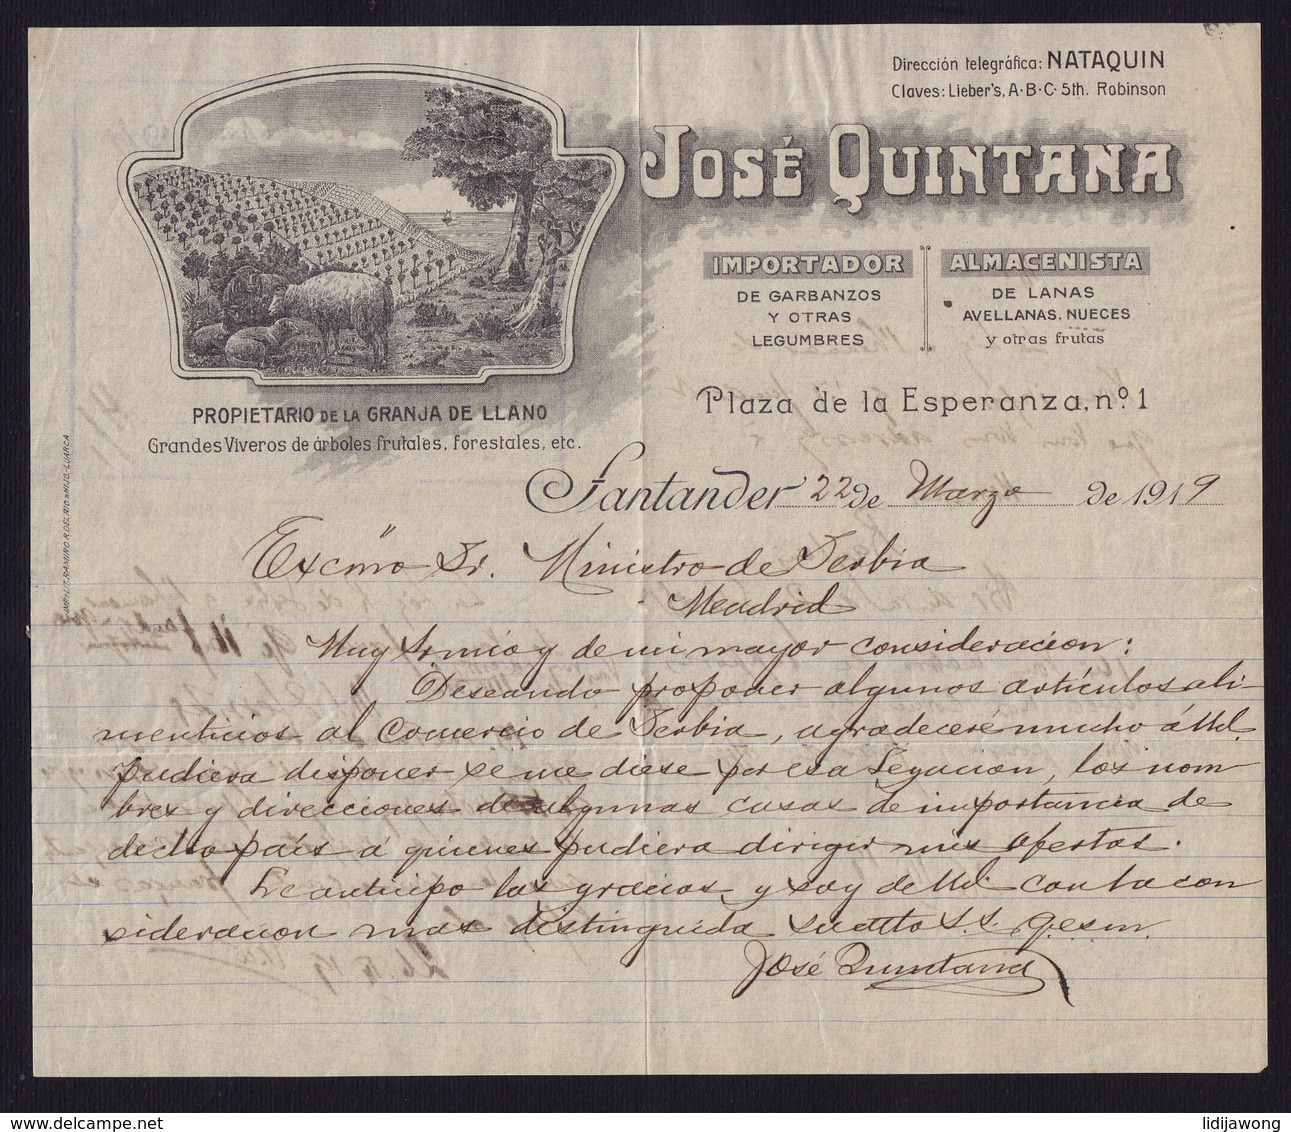 Dirección telegráfica: NATAQUIN
Claves: Lieber's, A·B·C· 5th. Robinson
JOSÉ QUINTANA
IMPORTADOR
DE GARBANZOS
Y OTRAS
LEGUMBRES
ALMACENISTA
DE LANAS
AVELLANAS, NUECES
y otras frutas
PROPIETARIO DE LA GRANJA DE LLANO
Grandes Viveros de árboles frutales, forestales, etc.
Plaza de la Esperanza, nº. 1
IMP. Y LIT. RAMIRO P. DEL RIO e HIJO.-LUARCA
Santander 22 de Marzo de 1919
Excmo Sr. Ministro de Serbia
Madrid
Muy Sr. mio y de mi mayor consideracion:
Deseando proponer algunos artículos ali
menticios al Comercio de Serbia, agradeceré mucho á Ud.
pudiera disponer se me diese por esa Legacion, los nom
bres y direcciones de algunas casas de importancia de
dicho país á quienes pudiera dirigir mis ofertas.
Le anticipo las gracias y soy de Ud. con la con
sideracion mas distinguida su atto s.s. q.e.s.m.
José Quintana
lidijawong